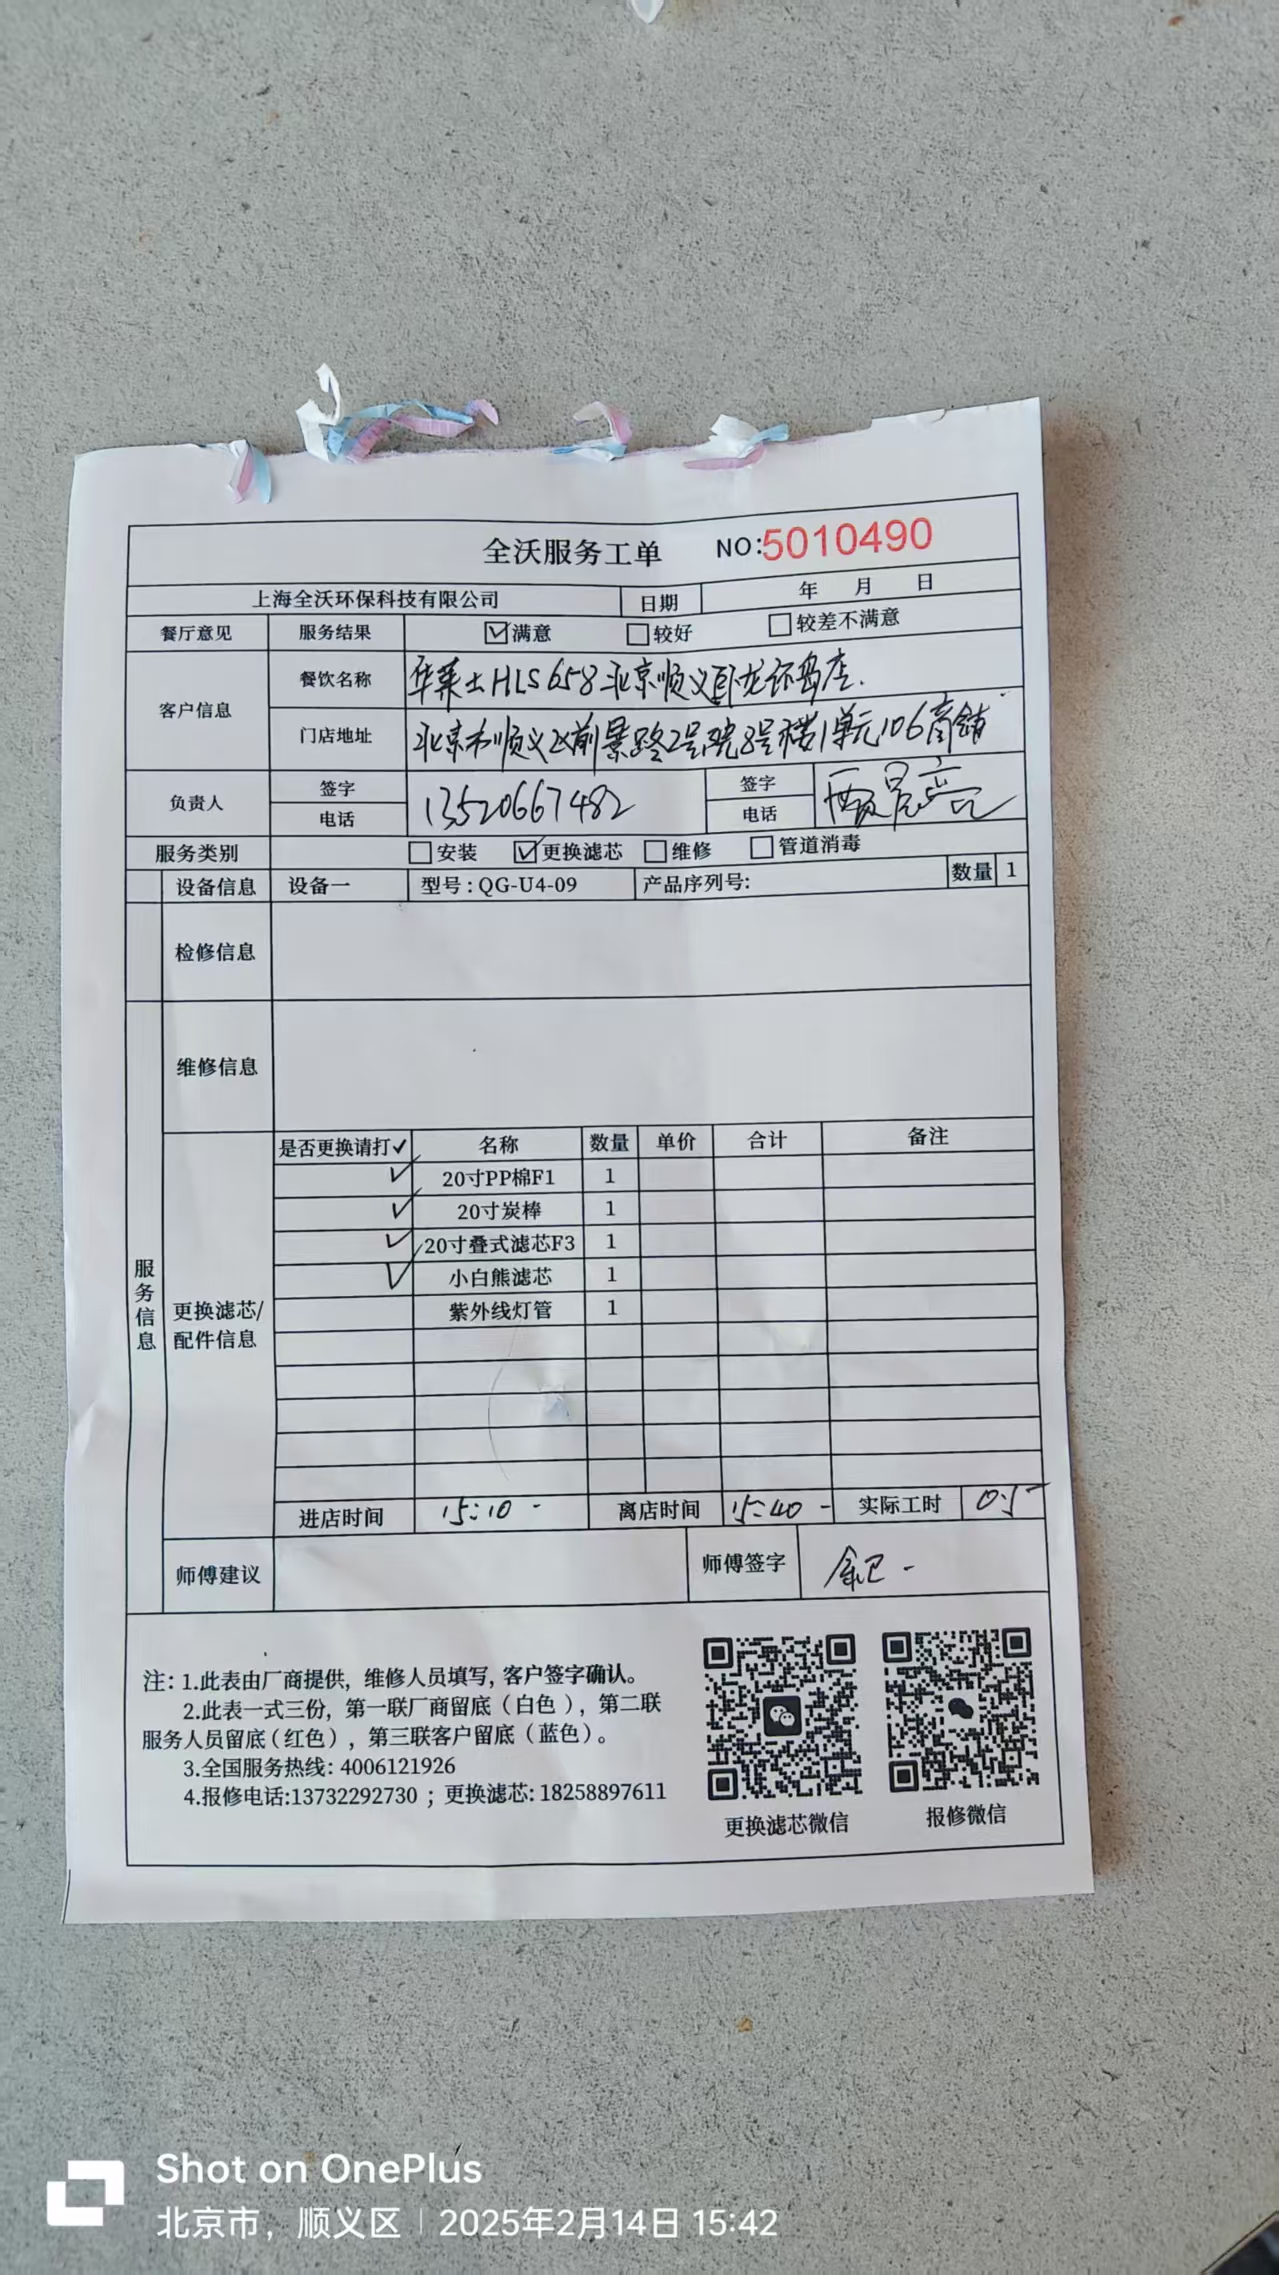 全沃服务工单 NO:5010490
上海全沃环保科技有限公司 日期 年 月 日
餐厅意见 服务结果 ☑满意 □较好 □较差不满意
客户信息 餐饮名称 华莱士HLS658北京顺义卧龙环岛店.
门店地址 北京市顺义区前景路2号院8号楼1单元106商铺
负责人 签字 电话 13520667482 签字 电话
服务类别 □安装 ☑更换滤芯 □维修 □管道消毒
设备信息 设备一 型号:QG-U4-09 产品序列号: 数量 1
检修信息
维修信息
服务信息
更换滤芯/配件信息
是否更换请打✓ 名称 数量 单价 合计 备注
✓ 20寸PP棉F1 1
✓ 20寸炭棒 1
✓ 20寸叠式滤芯F3 1
✓ 小白熊滤芯 1
紫外线灯管 1
进店时间 15:10 - 离店时间 15:40 - 实际工时 0.5
师傅建议 师傅签字
注: 1.此表由厂商提供, 维修人员填写, 客户签字确认。
2.此表一式三份, 第一联厂商留底(白色), 第二联
服务人员留底(红色), 第三联客户留底(蓝色)。
3.全国服务热线: 4006121926
4.报修电话:13732292730 ; 更换滤芯: 18258897611
更换滤芯微信 报修微信
Shot on OnePlus
北京市，顺义区 | 2025年2月14日 15:42